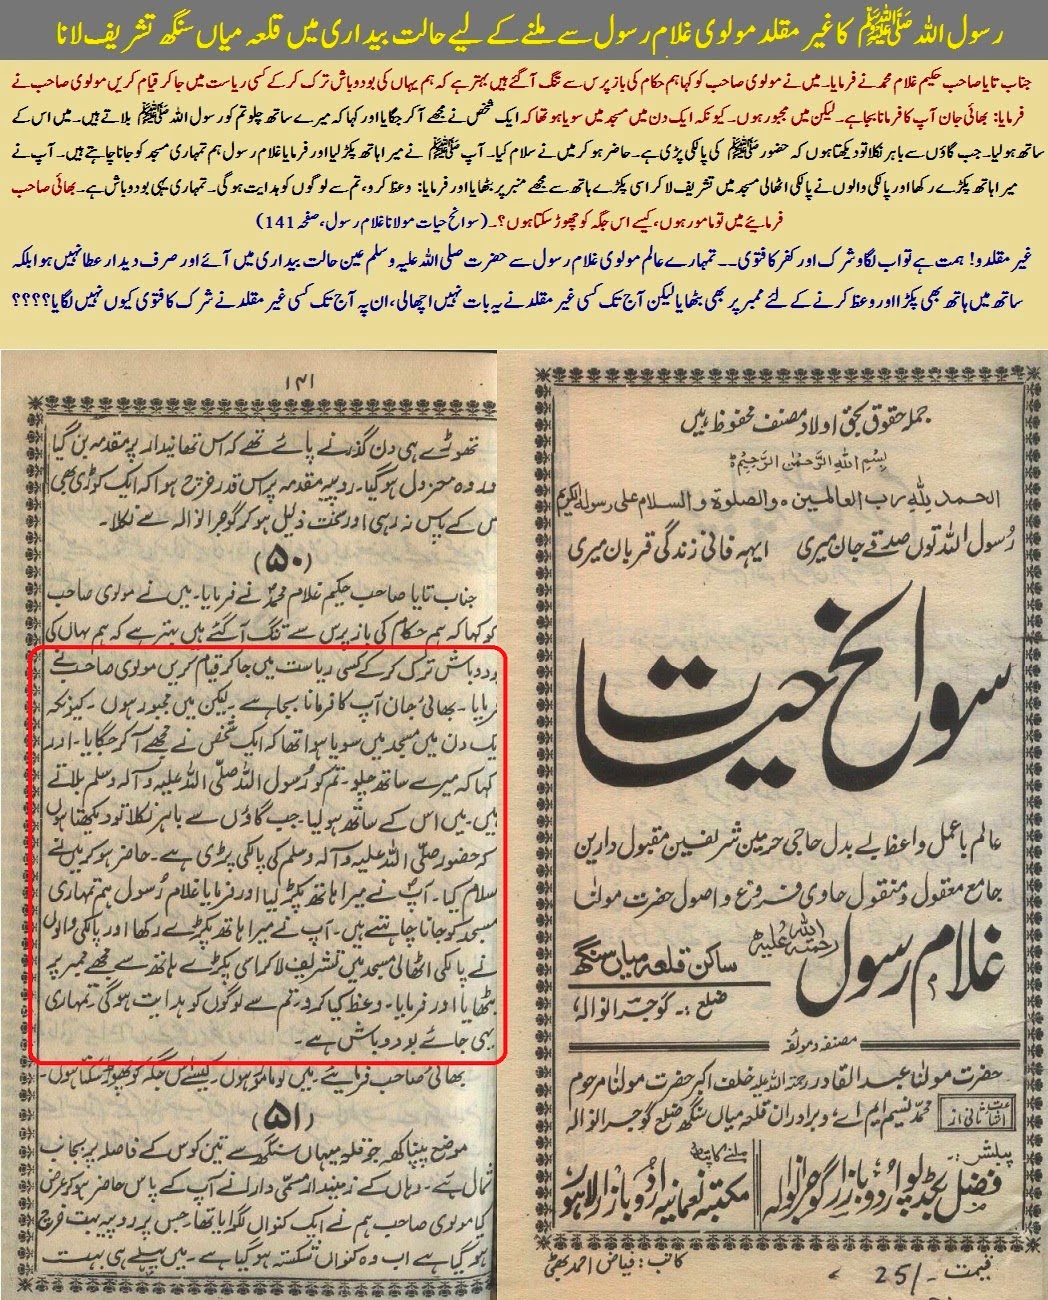 رسول اللہ ﷺ کا غیر مقلد مولوی غلام رسول سے ملنے کے لیے حالت بیداری میں قلعہ میاں سنگھ تشریف لانا
جناب تایا صاحب حکیم غلام محمد نے فرمایا۔ میں نے مولوی صاحب کو کہا ہم حکام کی باز پرس سے تنگ آ گئے ہیں بہتر ہے کہ ہم یہاں کی بود و باش ترک کر کے کسی ریاست میں جا کر قیام کریں مولوی صاحب نے
فرمایا: بھائی جان آپ کا فرمانا بجا ہے۔ لیکن میں مجبور ہوں۔ کیونکہ ایک دن میں مسجد میں سویا ہو تھا کہ ایک شخص نے مجھے آ کر جگایا اور کہا کہ میرے ساتھ چلو تم کو رسول اللہ ﷺ بلاتے ہیں۔ میں اس کے
ساتھ ہو لیا۔ جب گاؤں سے باہر نکلا تو دیکھتا ہوں کہ حضور ﷺ کی پالکی پڑی ہے۔ حاضر ہو کر میں نے سلام کیا۔ آپ ﷺ نے میرا ہاتھ پکڑ لیا اور فرمایا غلام رسول ہم تمہاری مسجد کو جانا چاہتے ہیں۔ آپ نے
میرا ہاتھ پکڑے رکھا اور پالکی والوں نے پالکی اٹھالی مسجد میں تشریف لا کر اسی پکڑے ہاتھ سے مجھے منبر پر بٹھایا اور فرمایا: وعظ کرو، تم سے لوگوں کو ہدایت ہوگی۔ تمہاری یہی بود و باش ہے۔ بھائی صاحب
فرمائیے میں تو مامور ہوں، کیسے اس جگہ کو چھوڑ سکتا ہوں؟۔ (سوانح حیات مولانا غلام رسول، صفحہ 141)
غیر مقلدو! ہمت ہے تو اب لگاؤ شرک اور کفر کا فتویٰ۔۔ تمہارے عالم مولوی غلام رسول سے حضرت صلی اللہ علیہ وسلم عین حالت بیداری میں آئے اور صرف دیدار عطا نہیں ہوا بلکہ
ساتھ میں ہاتھ بھی پکڑا اور وعظ کرنے کے لئے ممبر پر بھی بٹھایا لیکن آج تک کسی غیر مقلد نے یہ بات نہیں اچھالی، ان پہ آج تک کسی غیر مقلد نے شرک کا فتویٰ کیوں نہیں لگایا؟؟؟؟
جملہ حقوق بحق اولاد مصنف محفوظ ہیں
بِسْمِ اللهِ الرَّحْمٰنِ الرَّحِيْمِ
الحمد للہ رب العالمین والصلوة والسلام علی رسولہ الکریم
رسول اللہ توں صدقے جان میری ایہہ فانی زندگی قربان میری
سوانح حیات
عالم باعمل واعظ بے بدل حاجی حرمین شریفین مقبول دارین
جامع معقول و منقول حاوی فروع و اصول حضرت مولنا
غلام رسول رحمۃ اللہ علیہ
ساکن قلعہ میاں سنگھ
ضلع :۔ گوجرانوالہ
مصنفہ و مولفہ
حضرت مولنا عبدالقادر رحمۃ اللہ علیہ خلف اکبر حضرت مولنا مرحوم
اشاعت ثانی از محمد نسیم ایم اے و برادران قلعہ میاں سنگھ ضلع گوجرانوالہ
پبلشر :۔
فضل بکڈپو اردو بازار گوجرانوالہ
ملنے کا پتہ
مکتبہ نعمانیہ اردو بازار لاہور
قیمت -/25
کاتب : فیاض احمد بھٹی
۱۴۱
تھوڑے ہی دن گذرنے پائے تھے کہ اس تھانیدار پر مقدمہ بن گیا
وہ معزول ہو گیا۔ روپیہ مقدمہ پر اس قدر خرچ ہوا کہ ایک کوڑی بھی
س کے پاس نہ رہی اور سخت ذلیل ہو کر گوجرانوالہ سے نکلا۔
(۵۰)
جناب تایا صاحب حکیم غلام محمد نے فرمایا۔ میں نے مولوی صاحب
کو کہا کہ ہم حکام کی باز پرس سے تنگ آ گئے ہیں بہتر ہے کہ ہم یہاں کی
ود و باش ترک کر کے کسی ریاست میں جا کر قیام کریں مولوی صاحب نے
فرمایا۔ بھائی جان آپ کا فرمانا بجا ہے۔ لیکن میں مجبور ہوں۔ کیونکہ
یک دن میں مسجد میں سویا ہوا تھا کہ ایک شخص نے مجھے آ کر جگایا۔ اور
کہا کہ میرے ساتھ چلو۔ تم کو رسول اللہ صلی اللہ علیہ و آلہ وسلم بلاتے
ہیں۔ میں اس کے ساتھ ہو لیا۔ جب گاؤں سے باہر نکلا تو دیکھتا ہوں
کہ حضور صلی اللہ علیہ و آلہ وسلم کی پالکی پڑی ہے۔ حاضر ہو کر میں نے
سلام کیا۔ آپ نے میرا ہاتھ پکڑ لیا اور فرمایا غلام رسول ہم تمہاری
مسجد کو جانا چاہتے ہیں۔ آپ نے میرا ہاتھ پکڑے رکھا اور پالکی والوں
نے پالکی اٹھالی مسجد میں تشریف لا کر اسی پکڑے ہاتھ سے مجھے ممبر پر
بٹھایا اور فرمایا۔ وعظ کیا کرو۔ تم سے لوگوں کو ہدایت ہوگی۔ تمہاری
یہی جائے بود و باش ہے۔
بھائی صاحب فرمائیے۔ میں تو مامور ہوں۔ کیسے اس جگہ کو چھوڑ سکتا ہوں۔
(۵۱)
موضع پیپناکھہ جو قلعہ میہاں سنگھ سے تین کوس کے فاصلہ پر بجانب
شمال ہے۔ وہاں کے زمیندار مسمی دارا نے آپ کے پاس حاضر ہو کر عرض
کیا مولوی صاحب ہم نے ایک کنواں لگوایا تھا۔ جس پر روپیہ بہت خرچ
ہو گیا ہے اب وہ کنواں شکستہ ہو گیا ہے۔ میں پہلے ہی بہت